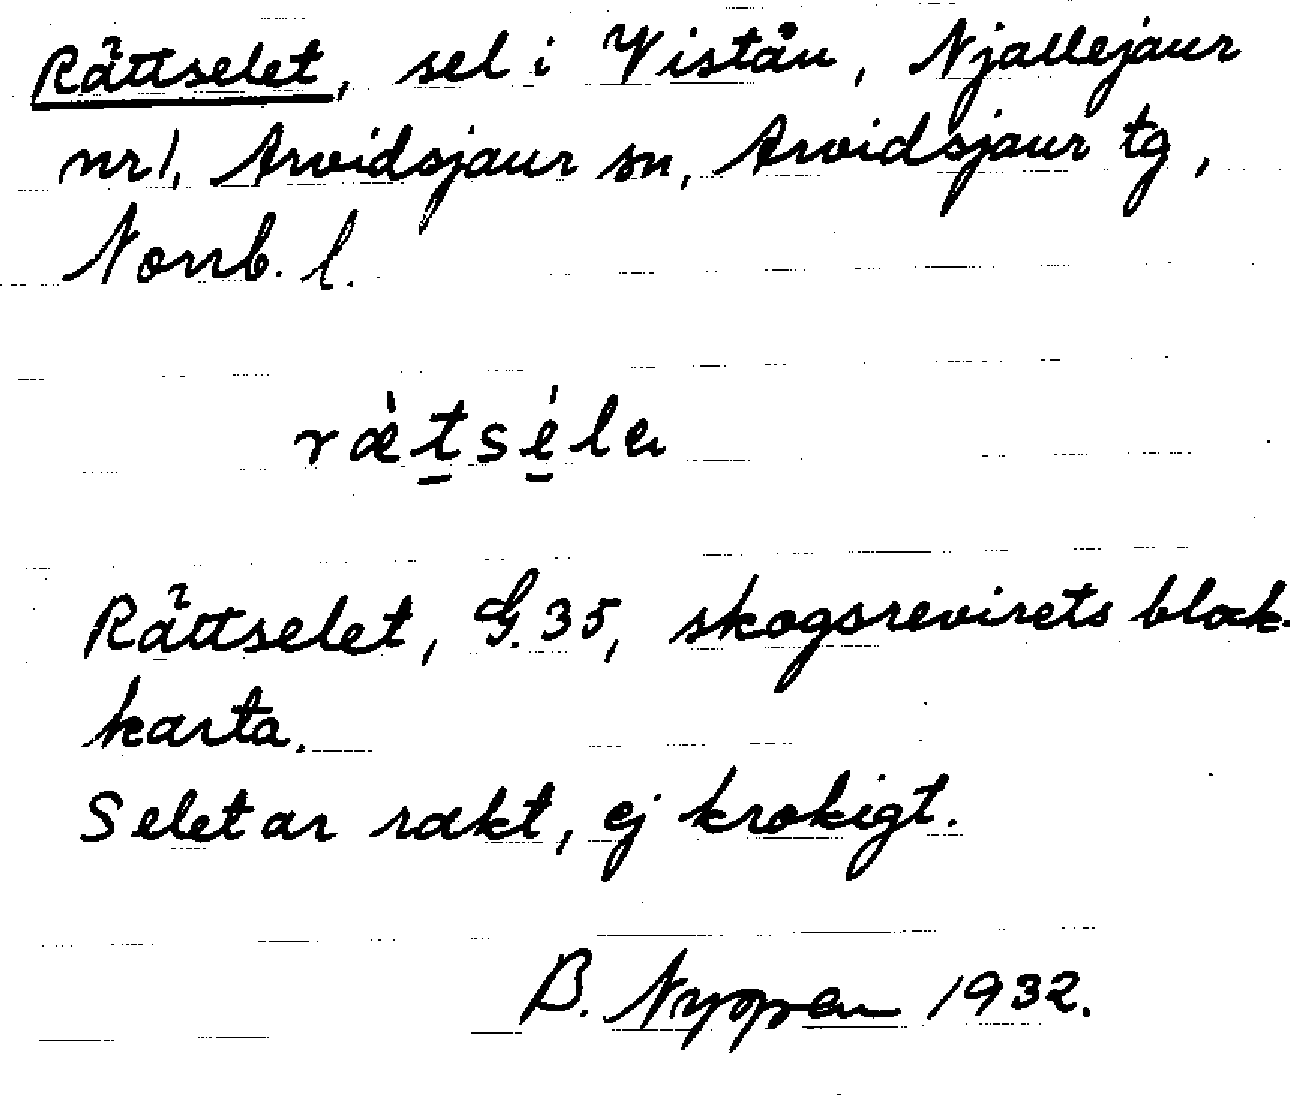 Rättselet, sel i Vistån, Njallejaur
nr 1, Arvidsjaur sn, Arvidsjaur tg,
Norrb. l.
Rättselet, G. 35, skogsrevirets block-
karta.
Selet är rakt, ej krokigt.
1932.